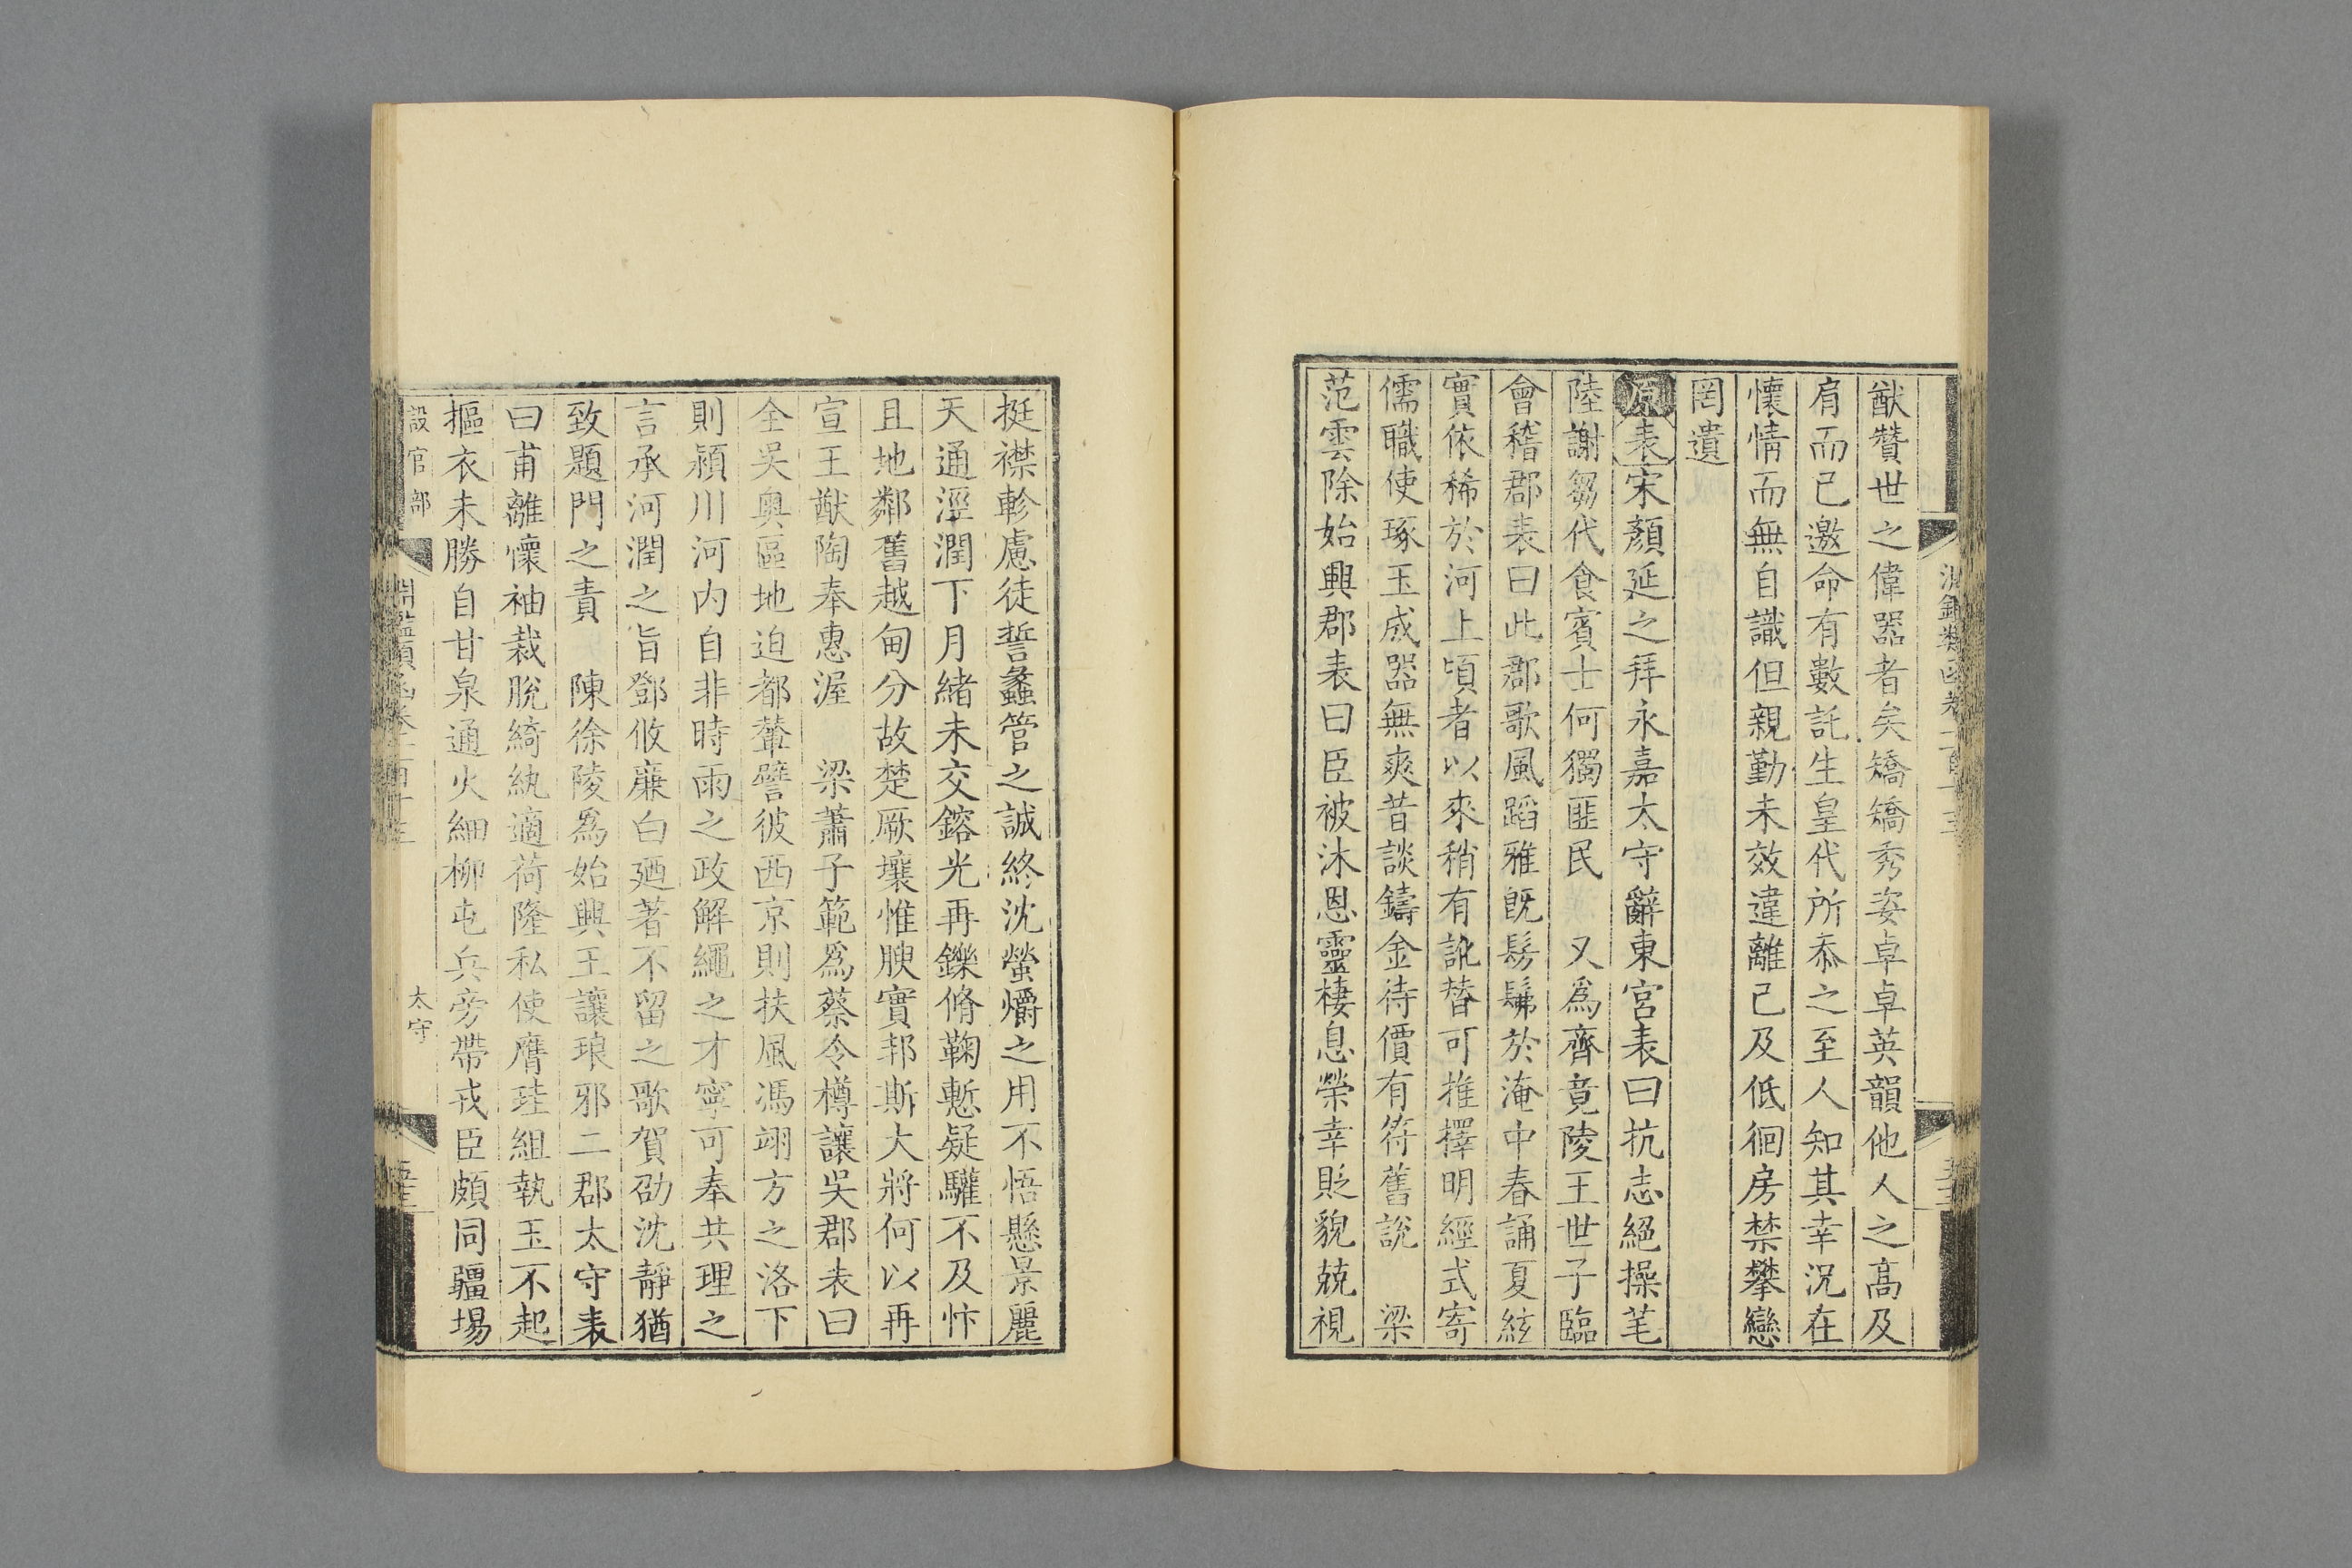 猷贊世之偉器者矣矯矯秀姿卓卓英韻他人之高及
肩而已邀命有數託生皇代所忝之至人知其幸況在
懷情而無自識但親勤未效違離已及低徊房禁攀戀
罔遺
原表宋顏延之拜永嘉太守辭東宮表曰抗志絕操芼
陸謝芻代食賓士何獨匪民 又為齊竟陵王世子臨
會稽郡表曰此郡歌風蹈雅旣髣髴於淹中春誦夏絃
實依稀於河上頃者以來稍有訛替可推擇明經式寄
儒職使琢玉成器無爽昔談鑄金待價有符舊說 梁
范雲除始興郡表曰臣被沐恩靈棲息榮幸貶貌兢視
挺襟軫慮徒誓蠡管之誠終沈螢爝之用不悟懸景麗
天通涇潤下月緒未交鎔光再鑠脩鞠慙疑驩不及忭
且地鄰舊越甸分故楚厥壤惟腴實邦斯大將何以再
宣王猷陶奉惠渥 梁蕭子範爲蔡令樽讓吳郡表曰
全吳奧區地迫都輦譬彼西京則扶風馮翊方之洛下
則潁川河內自非時雨之政解繩之才寧可奉共理之
言承河潤之旨鄧攸廉白廼著不留之歌賀劭沈靜猶
致題門之責 陳徐陵爲始興王讓琅邪二郡太守表
曰甫離懷袖裁脫綺紈適荷隆私使膺珪組執玉不起
摳衣未勝自甘泉通火細柳屯兵旁帶戎臣頗同疆埸
設官部
淵鑑類函卷一百十三
太守